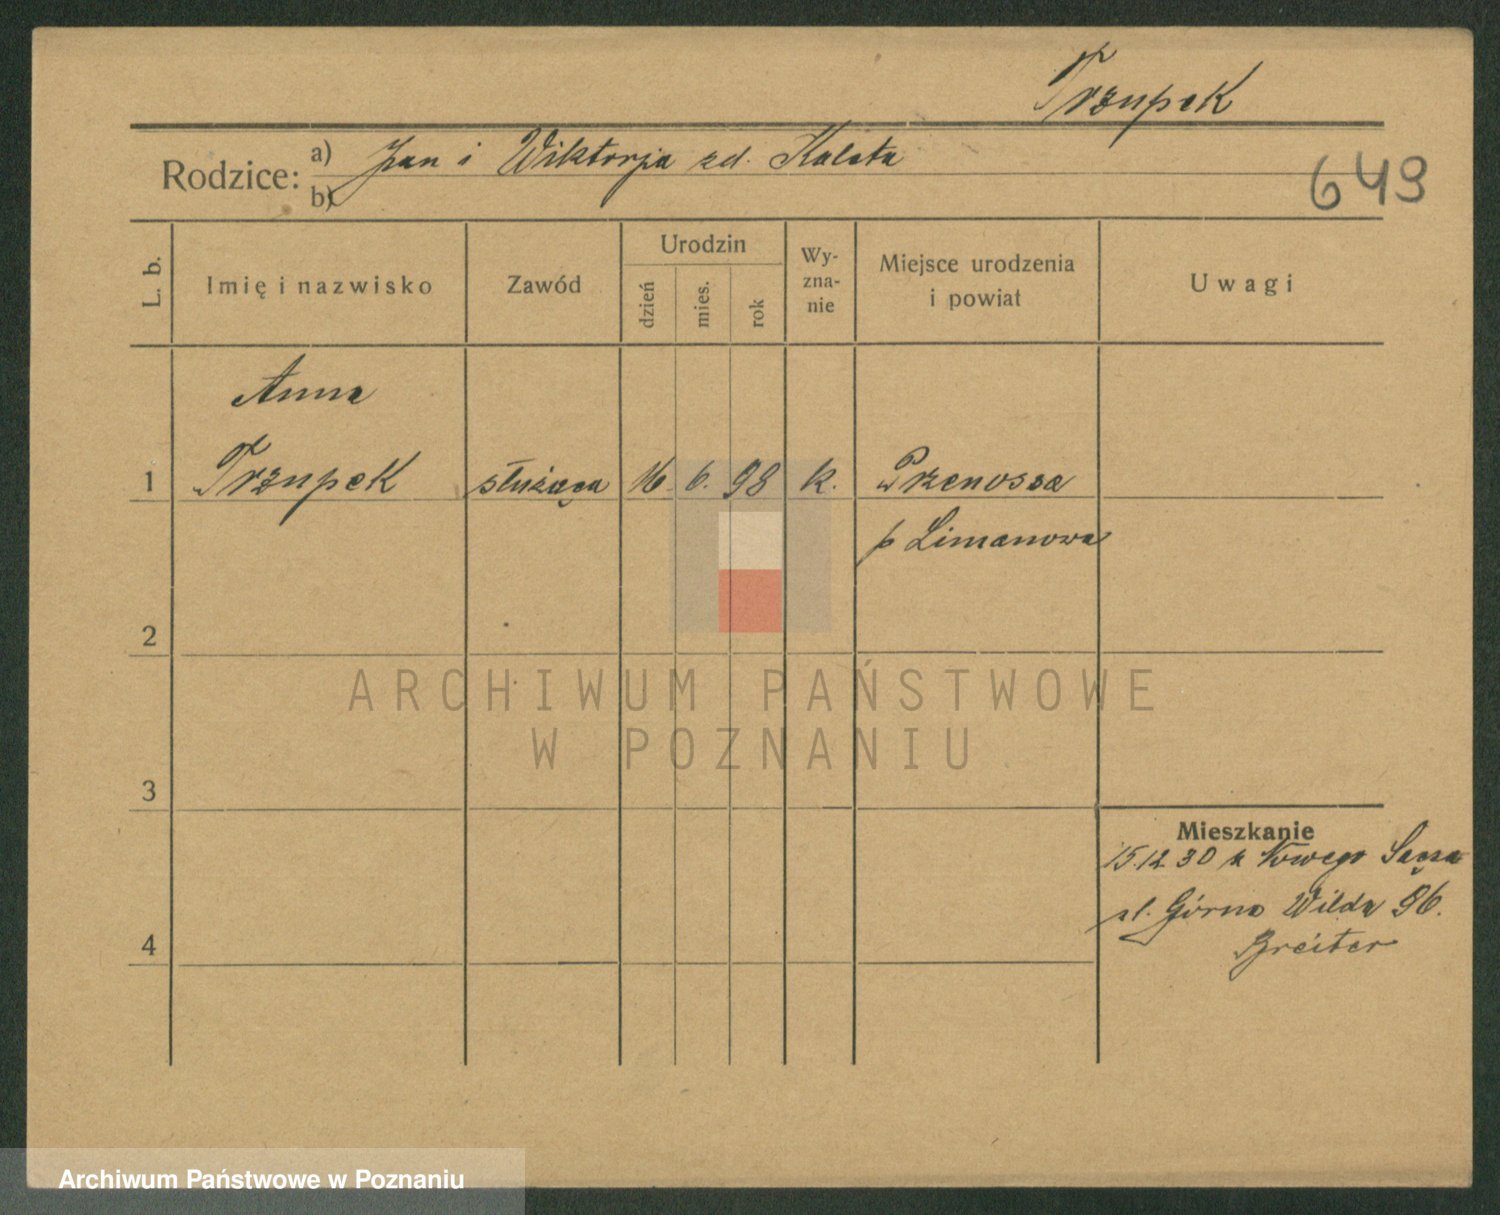 Trzupek
Rodzice: a) Jan i Wiktorja zd. Kaleta
b)
649
L. b.
Imię i nazwisko
Zawód
Urodzin
dzień
mies.
rok
Wy-
zna-
nie
Miejsce urodzenia
i powiat
Uwagi
Anna
1 Trzupek służąca 16. 6. 98 k. Przenosza
p Limanowa
2
3
4
ARCHIWUM PAŃSTWOWE
W POZNANIU
Mieszkanie
15.12 30 z Nowego Sącza
ul. Górna Wilda 96.
Breiter
Archiwum Państwowe w Poznaniu